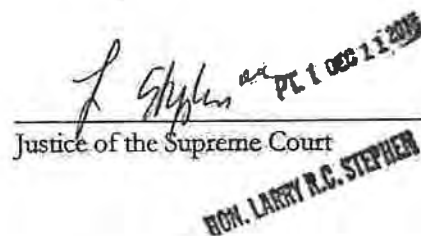 L Stephen
PT. 1 DEC 11 2018
Justice of the Supreme Court
HON. LARRY R.C. STEPHEN